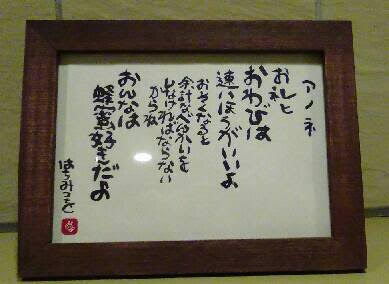 アノネ
お礼と
おわびは
速いほうがいいよ
おそくなると
余計なべんかいを
しなければならない
からね
おんなは
蜂蜜好きだよ
はちみつを